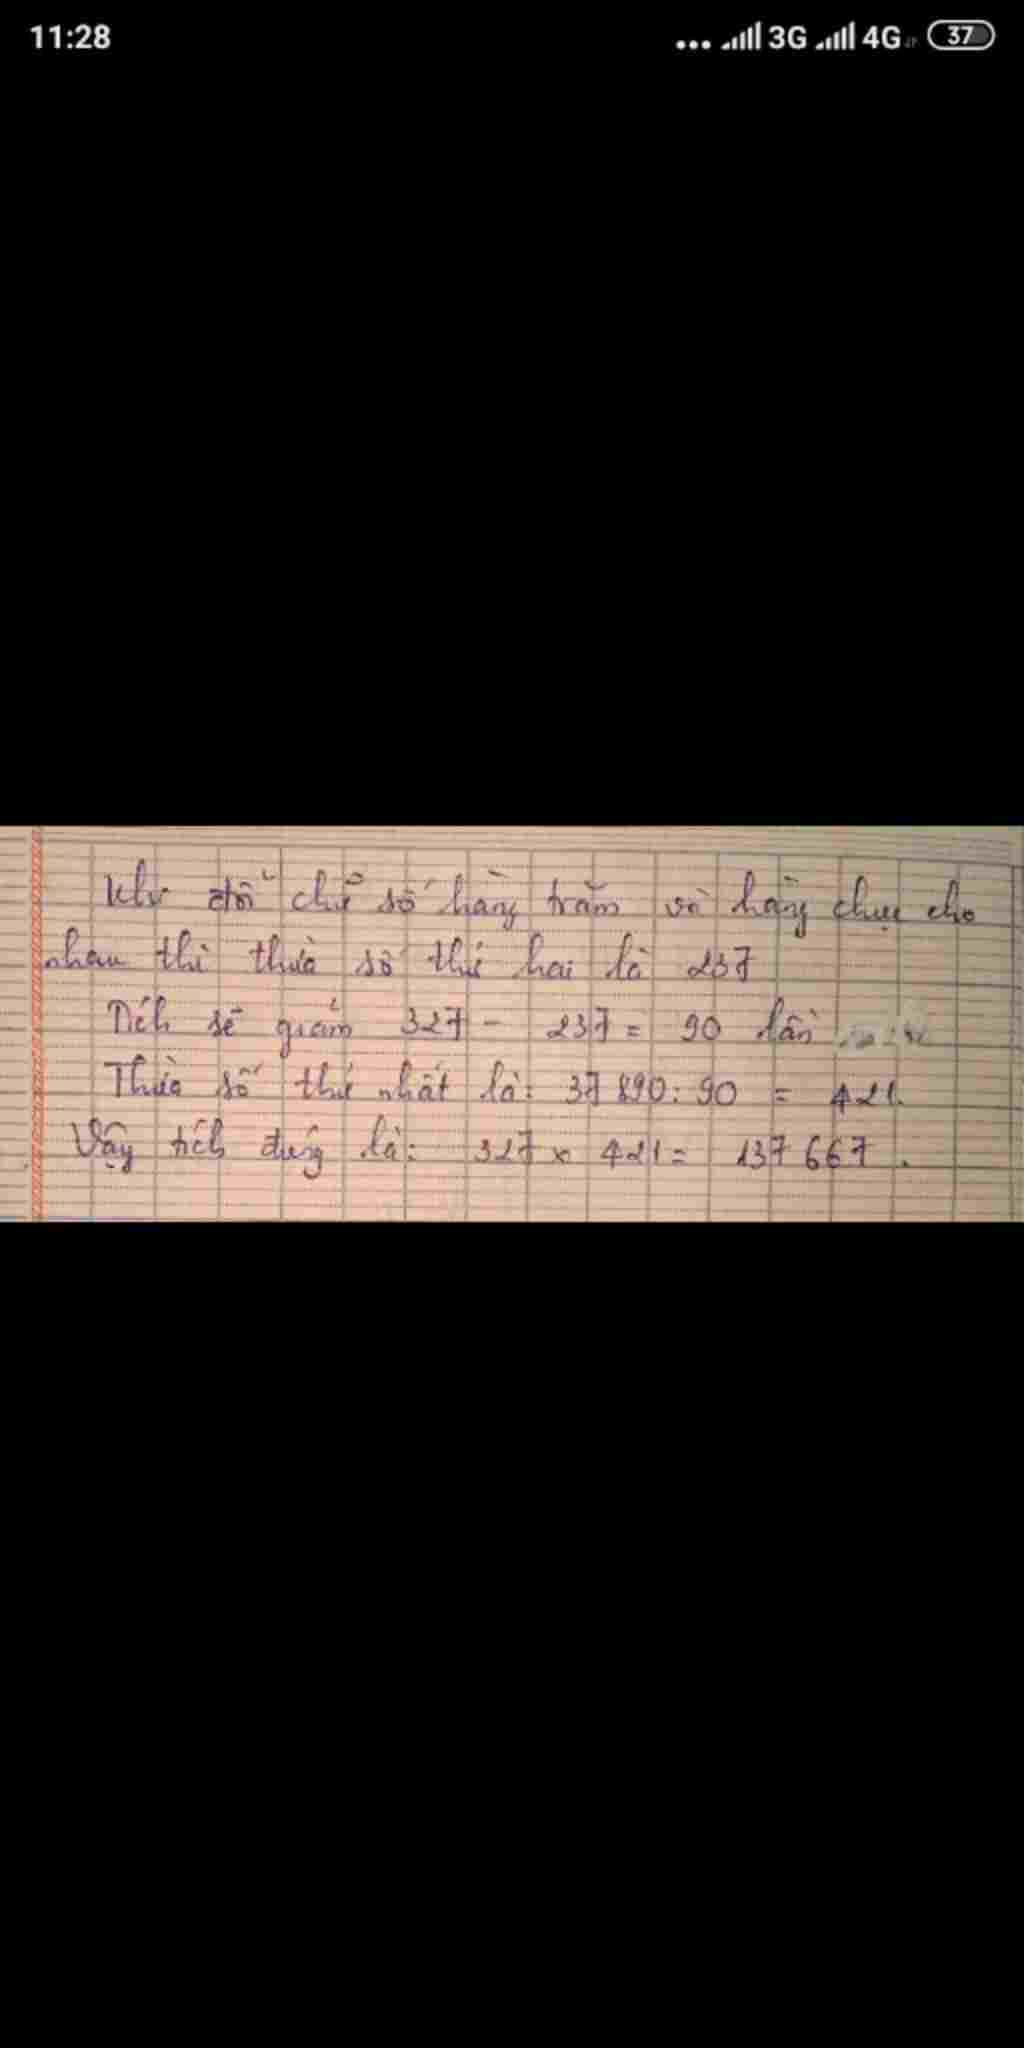 11:28 ... 3G 4G 37
Khi đổi chữ số hàng trăm và hàng chục cho
nhau thì thừa số thứ hai là 237
Tích sẽ giảm 327 - 237 = 90 lần
Thừa số thứ nhất là: 37 890 : 90 = 421.
Vậy tích đúng là: 327 x 421 = 137 667.